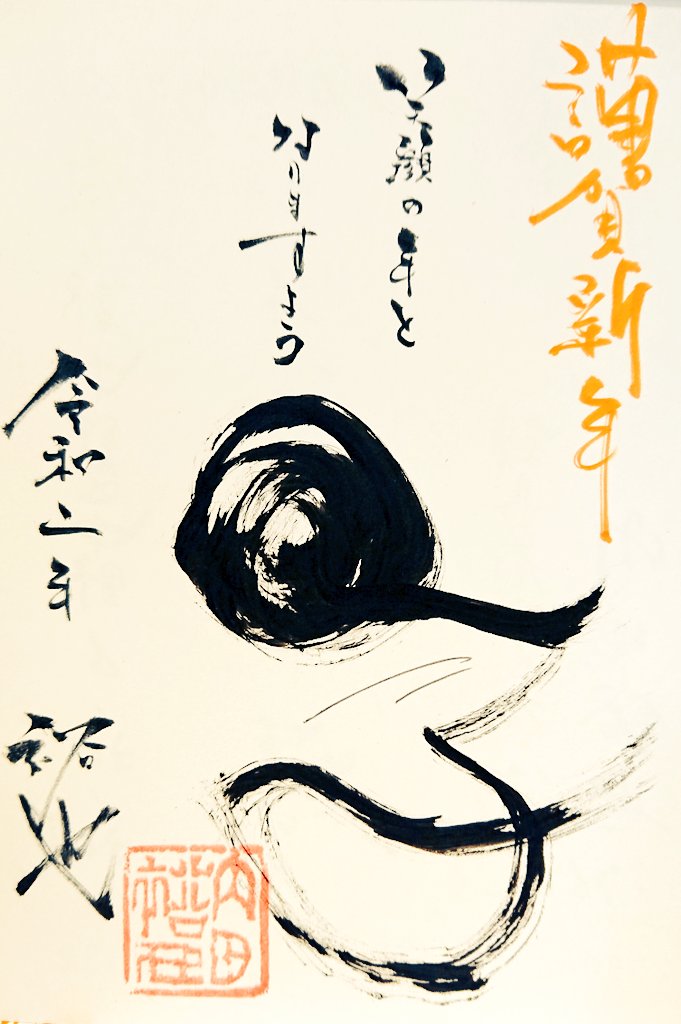 謹賀新年
笑顔の年と
なりますよう
子
令和二年
裕
内田